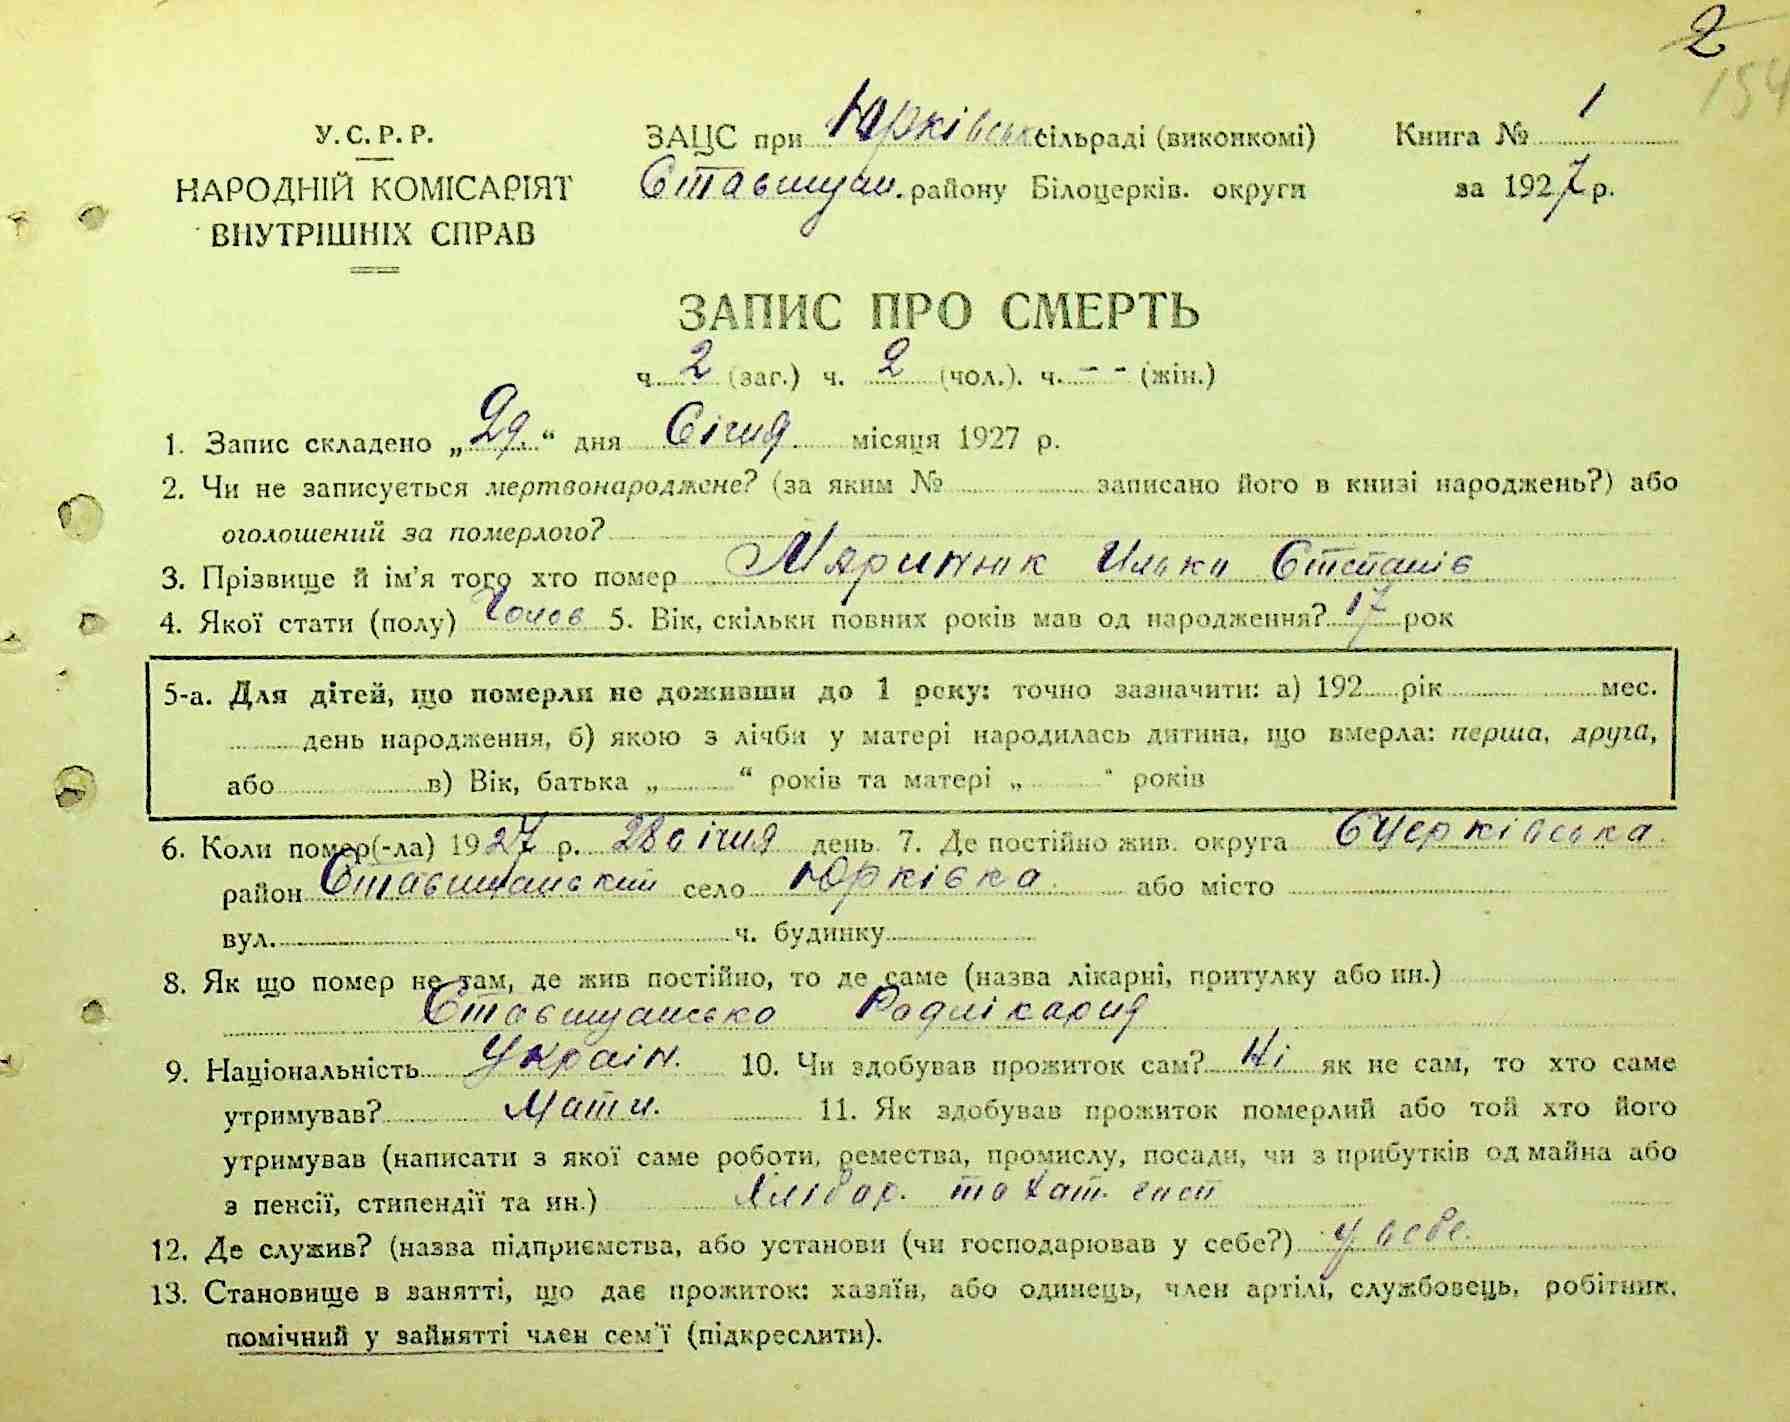 2
154
У.С.Р.Р.
НАРОДНІЙ КОМІСАРІЯТ
ВНУТРІШНІХ СПРАВ
ЗАЦС при Юрківськ сільраді (виконкомі)
Ставищан. району Білоцерків. округи
Книга № 1
за 1927 р.
ЗАПИС ПРО СМЕРТЬ
ч. 2 (заг.) ч. 2 (чол.). ч. - - (жін.)
1. Запис складено „29.“ дня Січня місяця 1927 р.
2. Чи не записується мертвонароджене? (за яким № записано його в книзі народжень?) або
оголошений за померлого?
3. Прізвище й ім'я того хто помер Маринюк Илько Степанів
4. Якої стати (полу) Чолов 5. Вік, скільки повних років мав од народження? 17 рок
5-а. Для дітей, що померли не доживши до 1 року: точно зазначити: а) 192 рік мес.
день народження, б) якою з лічби у матері народилась дитина, що вмерла: перша, друга,
або в) Вік, батька „ “ років та матері „ “ років
6. Коли помер(-ла) 1927 р. 28 січня день. 7. Де постійно жив. округа БЦерківська
район Ставищанський село Юрківка або місто
вул. ч. будинку
8. Як що помер не там, де жив постійно, то де саме (назва лікарні, притулку або ин.)
Ставищансько Радлікарня
9. Національність Україн. 10. Чи здобував прожиток сам? Ні як не сам, то хто саме
утримував? Мати. 11. Як здобував прожиток померлий або той хто його
утримував (написати з якої саме роботи, ремества, промислу, посади, чи з прибутків од майна або
з пенсії, стипендії та ин.) Хлібор. та хат. госп
12. Де служив? (назва підприємства, або установи (чи господарював у себе?) у себе.
13. Становище в занятті, що дає прожиток: хазяїн, або одинець, член артілі, службовець, робітник,
помічний у зайнятті член сем'ї (підкреслити).